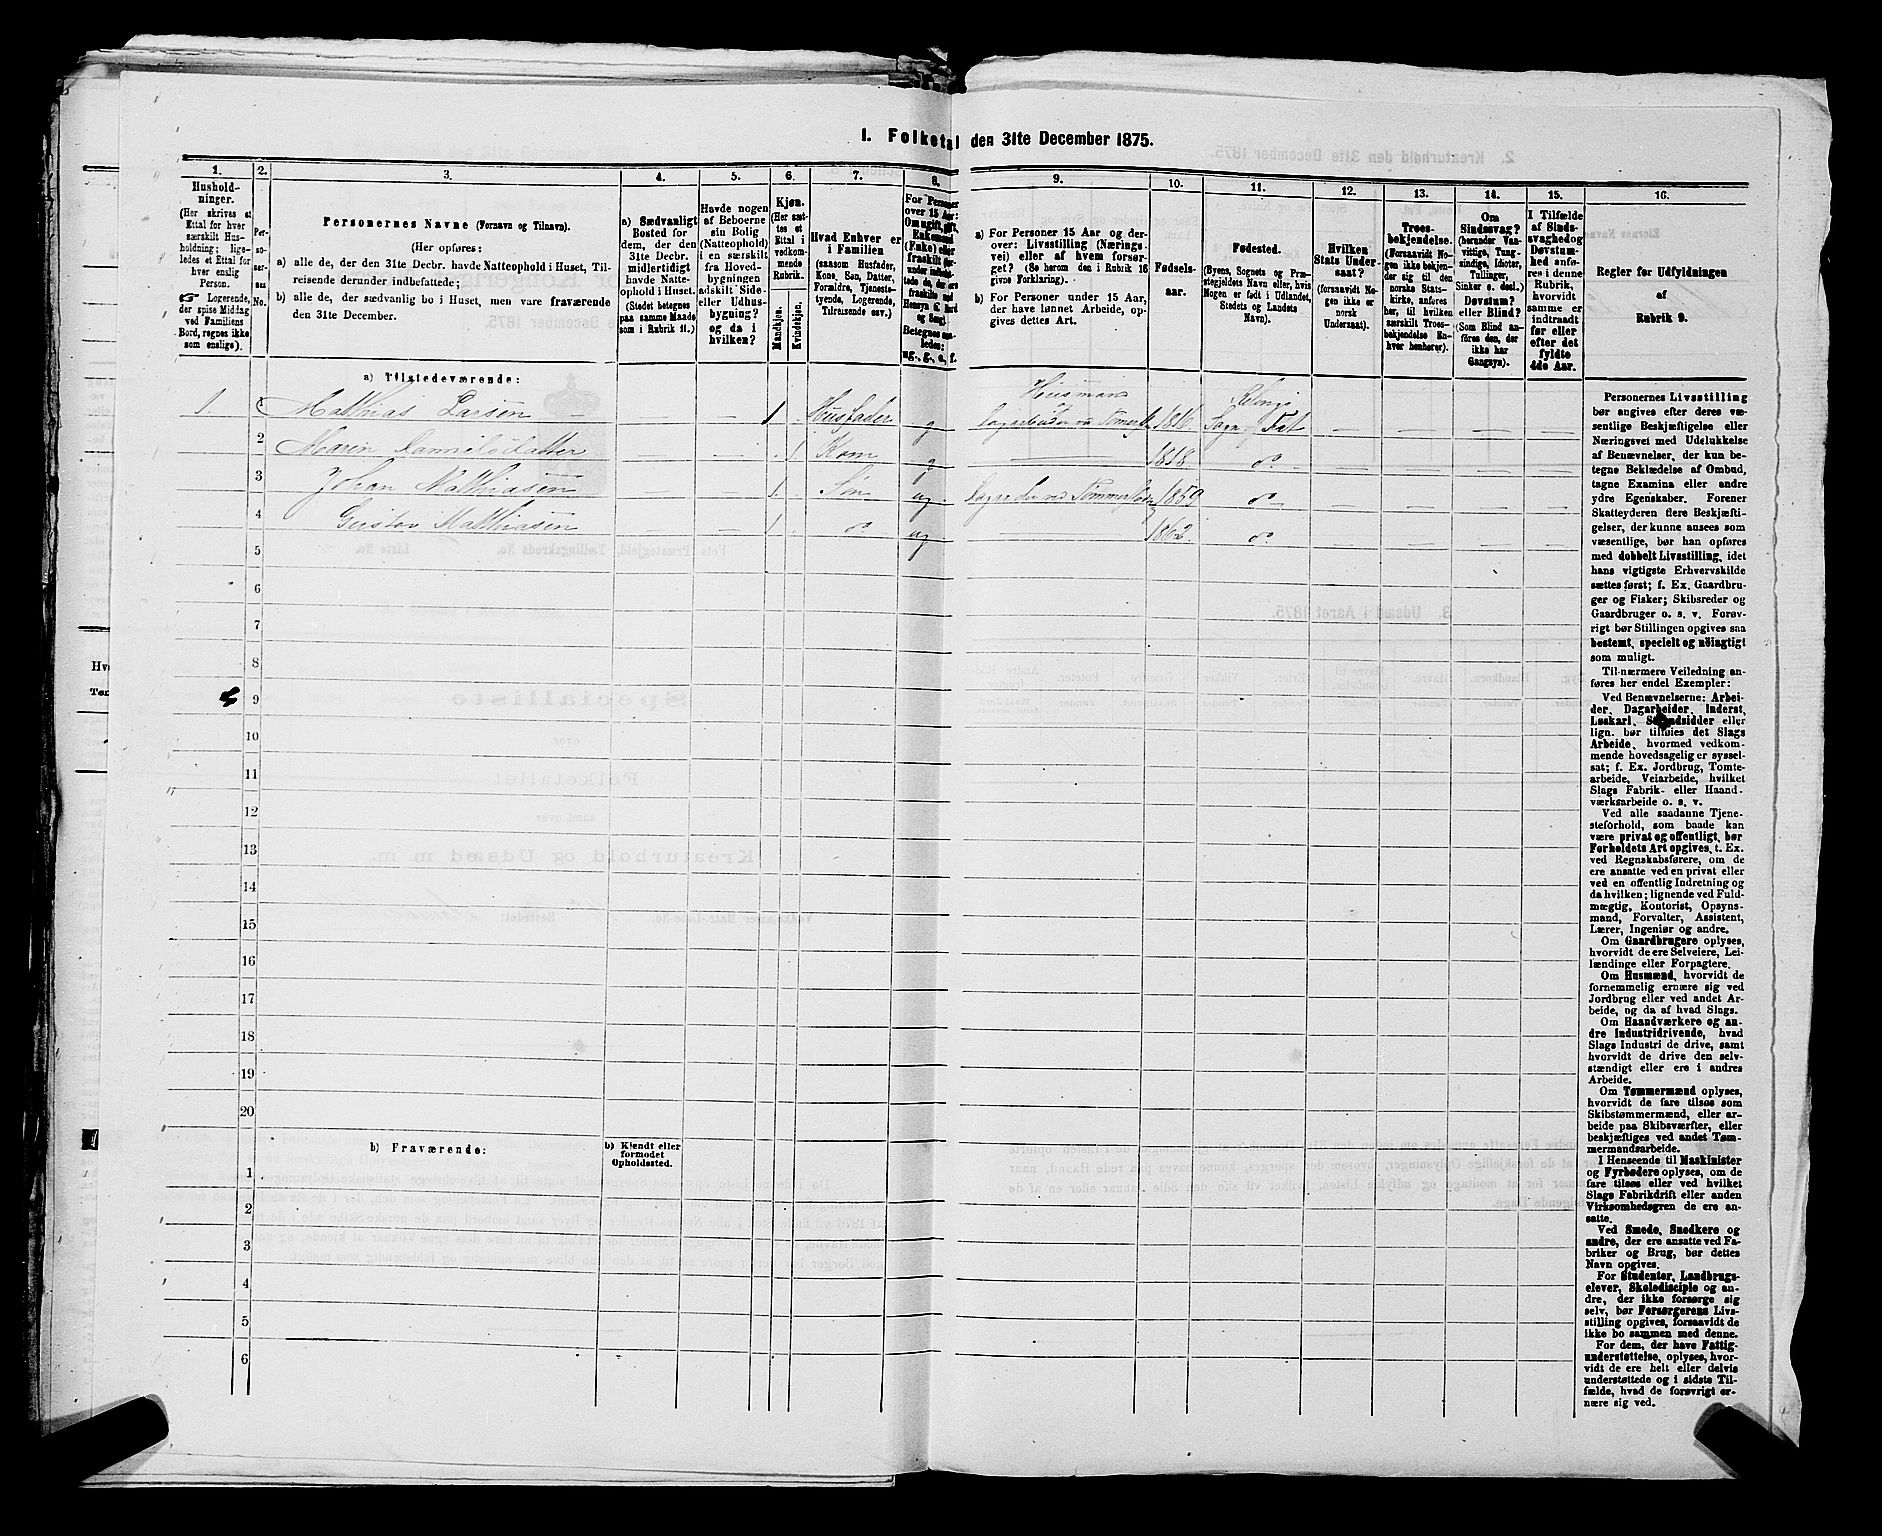 1. Folketal den 31te December 1875.
1.
Hushold-
ninger.
(Her skrives et
Ettal for hver
særskilt Hus-
holdning; lige-
ledes et Ettal
for hver
enslig
Person.
Logerende,
der spise Middag
ved Familiens
Bord, regnes ikke
som enslige).
2.
Per-
so-
ner-
nes
No.
3.
Personernes Navne (Fornavn og Tilnavn).
(Her opføres:
a) alle de, der den 31te Decbr. havde Natteophold i Huset, Til-
reisende derunder indbefattede;
b) alle de, der sædvanlig bo i Huset, men vare fraværende
den 31te December.
4.
a) Sædvanligt
Bosted for
dem, der den
31te Decbr.
midlertidigt
havde Natte-
ophold i Huset.
(Stedet betegnes
paa samme Maade
som i Rubrik 11.)
5.
Havde nogen
af Beboerne
sin Bolig
(Natteophold)
i en særskilt
fra Hoved-
bygningen
adskilt Side-
eller Udhus-
bygning?
og da i
hvilken?
6.
Kjøn.
(Her sæt-
tes et
Ettal i
vedkom-
mende
Rubrik.
Mandkjøn.
Kvindekjøn.
7.
Hvad Enhver er
i Familien
(saasom Husfader,
Kone, Søn, Datter,
Forældre, Tjeneste-
tyende, Logerende,
Tilreisende osv.)
8.
For Personer
over 15 Aar:
Om ugift, gift,
Enkemand
(Enke) eller
fraskilt
Betegnes saa-
ledes:
ug., g., e., f.
9.
a) For Personer 15 Aar og der-
over: Livsstilling (Nærings-
vei) eller af hvem forsør-
get? (Se herom den i Rubrik 16
givne Forklaring).
b) For Personer under 15 Aar,
der have lønnet Arbeide, op-
gives dettes Art.
10.
Fødsels-
aar.
11.
Fødested.
(Byens, Sognets og Præ-
stegjeldets Navn eller, hvis
Nogen er født i Udlandet,
Stedets og Landets
Navn).
12.
Hvilken
Stats Under-
saat?
(forsaavidt No-
gen ikke er
norsk
Undersaat).
13.
Troes-
bekjendelse.
(Forsaavidt No-
gen ikke bekjen-
der sig til den
norske Stats-
kirke, anføres
her, til hvilken
særskilt Troes-
bekjendelse En-
hver henhører).
14.
Om
Sindssvag?
(herunder Van-
vittige, Tung-
sindige, Idioter,
Tullinger,
Sinker o. desl.)
Døvstum?
eller Blind?
(Som Blind an-
føres den, der
ikke har
Gangsyn).
15.
I Tilfælde
af Sinds-
svaghed og
Døvstum-
hed anfø-
res i denne
Rubrik,
hvorvidt
samme er
indtraadt
før eller
efter det
fyldte
4de Aar.
16.
Regler for Udfyldningen
af
Rubrik 9.
a) Tilstedeværende:
1. 1 Matthias Larsen — — 1 . Husfader g Huusmand 1816 — — — —
2 Maren — — . 1 Kone g — 1818 do — — — —
3 Johan Matthiasen — — 1 . Søn ug 1859 do — — — —
4 Gustav Matthiasen — — 1 . do ug — 1862 do — — — —
5
6
7
8
9
10
11
12
13
14
15
16
17
18
19
20
b) Fraværende:
b) Kjendt eller
formodet
Opholdssted.
1
2
3
4
5
6
Personernes Livsstilling
bør angives efter deres væ-
sentlige Beskjæftigelse eller
Næringsvei med Udelukkelse
af Benævnelser, der kun be-
tegne Beklædelse af Ombud,
tagne Examina eller andre
ydre Egenskaber. Forener
Skatteyderen flere Beskjæfti-
gelser, der kunne ansees som
væsentlige, bør han opføres
med dobbelt Livsstilling, idet
hans vigtigste Erhvervskilde
sættes først; f. Ex. Gaardbru-
ger og Fisker; Skibsreder og
Gaardbruger o. s. v. Forøv-
rigt bør Stillingen opgives saa
bestemt, specielt og nøiagtigt
som muligt.
Til nærmere Veiledning an-
føres her endel Exempler:
Ved Benævnelserne: Arbei-
der, Dagarbeider, Inderst,
Løskarl, Strandsidder eller
lign. bør tilføies det Slags
Arbeide, hvormed vedkom-
mende hovedsagelig er syssel-
sat; f. Ex. Jordbrug, Tomte-
arbeide, Veiarbeide, hvilket
Slags Fabrik- eller Haand-
værksarbeide o. s. v.
Ved alle saadanne Tjene-
steforhold, som baade kan
være privat og offentligt, bør
Forholdets Art opgives, t. Ex.
ved Regnskabsførere, om de
ere ansatte ved en privat eller
ved en offentlig Indretning og
da hvilken; lignende ved Fuld-
mægtig, Kontorist, Opsyns-
mand, Forvalter, Assistent,
Lærer, Ingeniør og andre.
Om Gaardbrugere oplyses,
hvorvidt de ere Selveiere, Lei-
lændinge eller Forpagtere.
Om Husmænd, hvorvidt de
fornemmelig ernære sig ved
Jordbrug eller ved andet Ar-
beide, og da af hvad Slags.
Om Haandværkere og an-
dre Industridrivende, hvad
Slags Industri de drive, samt
hvorvidt de drive den selv-
stændigt eller ere i andres
Arbeide.
Om Tømmermænd oplyses,
hvorvidt de fare tilsøs som
Skibstømmermænd, eller ar-
beide paa Skibsværfter, eller
beskjæftiges ved andet Tøm-
mermandsarbeide.
I Henseende til Maskinister
og Fyrbødere oplyses, om de
fare tilsøs eller ved hvilket
Slags Fabrikdrift eller anden
Virksomhedsgren de ere an-
satte.
Ved Smede, Snedkere og
andre, der ere ansatte ved Fa-
briker og Brug, bør dettes
Navn opgives.
For Studenter, Landbrugs-
elever, Skoledisciple og an-
dre, der ikke forsørge sig
selv, bør Forsørgerens Livs-
stilling opgives, forsaavidt de
ikke bo sammen med denne.
For dem, der have Fattig-
understøttelse, oplyses, hvor-
vidt de ere helt eller delvis
understøttede og i sidste Til-
fælde, hvad de forøvrigt er-
nære sig ved.